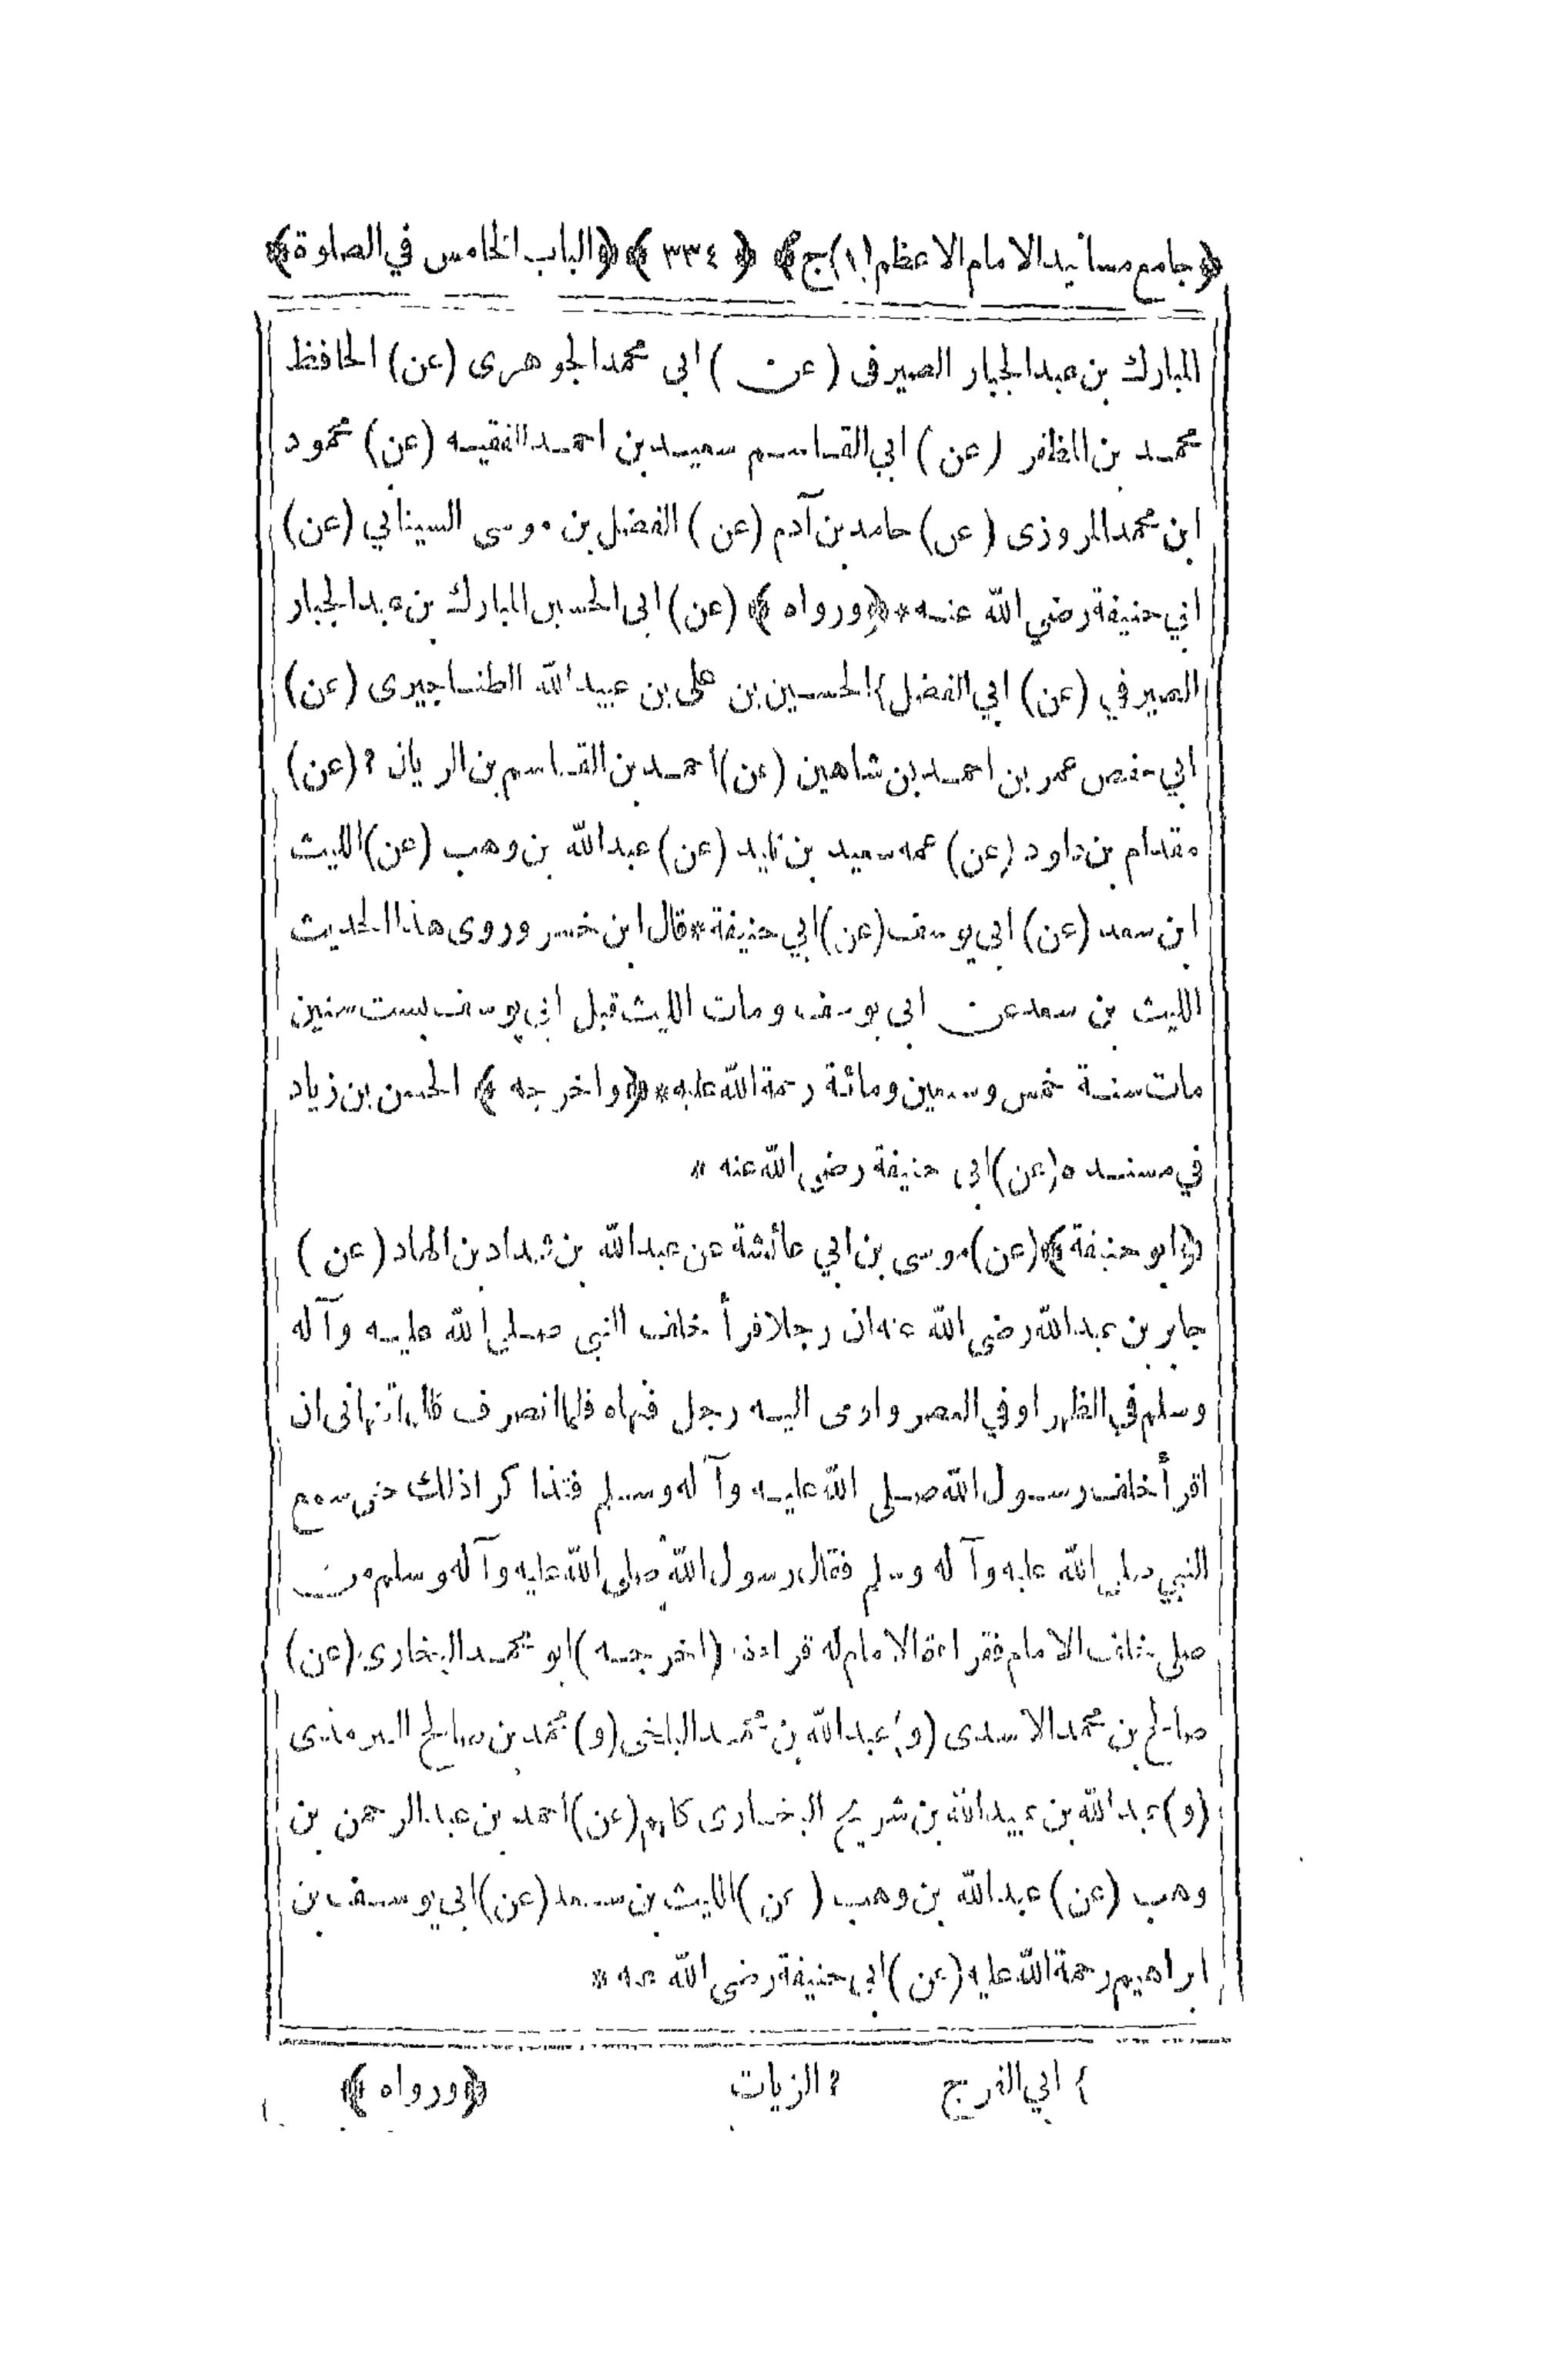 ﴿جامع مسانيد الامام الاعظم (١) ج﴾ ﴿٣٣٤﴾ ﴿الباب الخامس في الصلوة﴾
المبارك بن عبد الجبار الصيرفى (عن) ابي محمد الجوهرى (عن) الحافظ
محمد بن المظفر (عن) ابي القاسم سعيد بن احمد الفقيه (عن) محمود
ابن محمد المروزى (عن) حامد بن آدم (عن) الفضل بن موسى السيناني (عن)
ابي حنيفة رضي الله عنه * ﴿ورواه﴾ (عن) ابى الحسين المبارك بن عبد الجبار
الصيرفي (عن) ابي الفضل ٤ الحسين بن على بن عبيد الله الطناجيرى (عن)
ابي حفص عمر بن احمد بن شاهين (عن) احمد بن القاسم بن الريان ? (عن)
مقدام بن داود (عن) عمه سعيد بن تليد (عن) عبد الله بن وهب (عن) الليث
ابن سعد (عن) ابي يوسف (عن) ابي حنيفة * قال ابن خسرو وروى هذا الحديث
الليث بن سعد عن ابى يوسف ومات الليث قبل ابي يوسف بست سنين
مات سنة خمس وسبعين ومائة رحمة الله عليه * ﴿واخرجه﴾ الحسن بن زياد
في مسنده (عن) ابى حنيفة رضى الله عنه *
﴿ابو حنيفة﴾ (عن) موسى بن ابي عائشة عن عبد الله بن شداد بن الهاد (عن)
جابر بن عبد الله رضى الله عنه ان رجلا قرأ خلف النبي صلى الله عليه وآله
وسلم في الظهر او في العصر واومى اليه رجل فنهاه فلما انصرف قال اتنهانى ان
اقرأ خلف رسول الله صلى الله عليه وآله وسلم فتذاكرا ذلك حتى سمع
النبي صلى الله عليه وآله وسلم فقال رسول الله صلى الله عليه وآله وسلم من
صلى خلف الامام فقراءة الامام له قراءة (اخرجه) ابو محمد البخارى (عن)
صالح بن محمد الاسدى (و) عبد الله بن محمد البلخى (و) محمد بن صالح الترمذى
(و) عبد الله بن عبيد الله بن شريح البخارى كلهم (عن) احمد بن عبد الرحمن بن
وهب (عن) عبد الله بن وهب (عن) الليث بن سعد (عن) ابي يوسف بن
ابراهيم رحمة الله عليه (عن) ابى حنيفة رضى الله عنه *
٤ ابي الفرج ? الزيات ﴿ورواه﴾